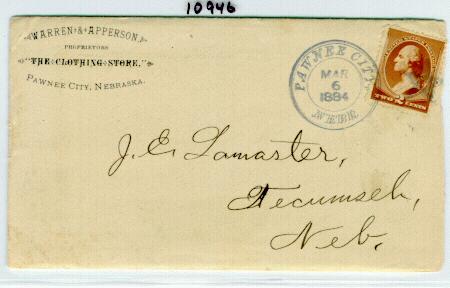 10946
WARREN & APPERSON,
PROPRIETORS
"THE CLOTHING STORE,"
PAWNEE CITY, NEBRASKA.
PAWNEE CITY
MAR
6
1884
NEBR
TWO 2 CENTS
J. E. Lamaster,
Tecumseh,
Neb.